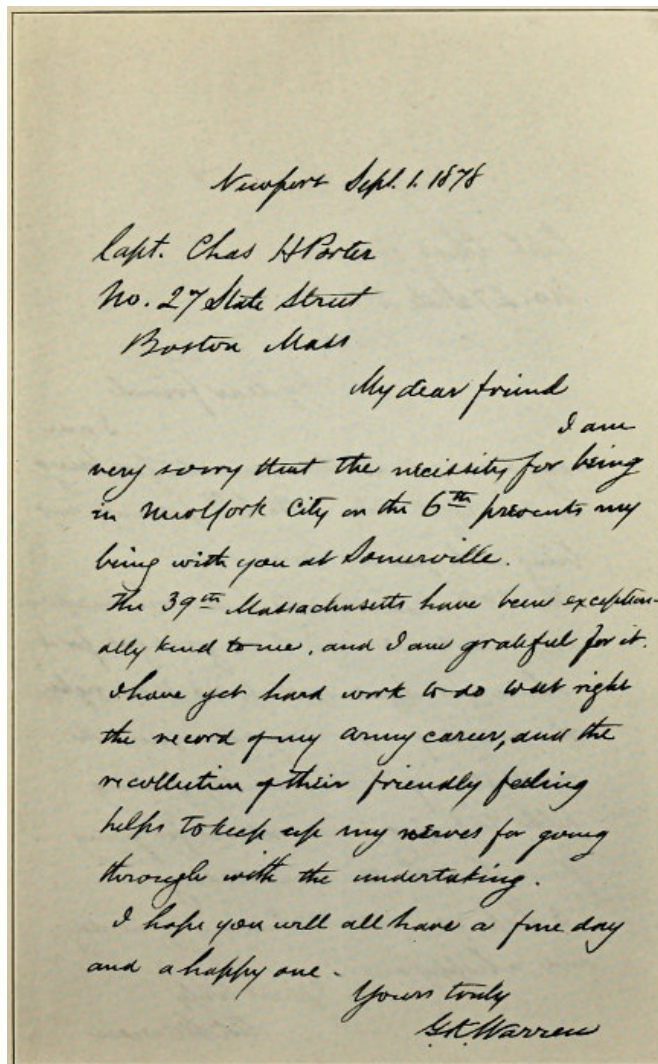 Newport Sept. 1. 1878
Capt. Chas H Porter
No. 27 State Street
Boston Mass
My dear friend
I am
very sorry that the necissity for being
in New York City on the 6th prevents my
being with you at Somerville.
The 39th Massachusetts have been exception-
ally kind to me, and I am grateful for it.
I have yet hard work to do to set right
the record of my army career, and the
recollection of their friendly feeling
helps to keep up my nerves for going
through with the undertaking.
I hope you will all have a fine day
and a happy one -
Yours truly
G.K. Warren